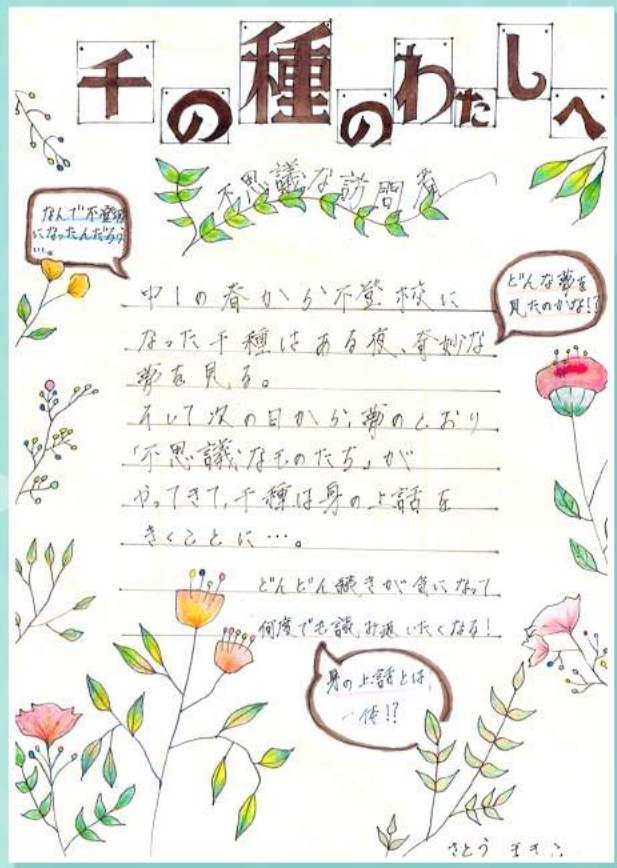 千の種のわたしへ
不思議な訪問者
なんで不登校
になったんだろう
…。
中1の春から不登校に
なった千種はある夜、奇妙な
夢を見る。
そして次の日から、夢のとおり
「不思議なものたち」が
やってきて、千種は身の上話を
きくことに…。
どんな夢を
見たのかな!?
どんどん続きが気になって
何度でも読み返したくなる!
身の上話とは、
一体!?
さとう